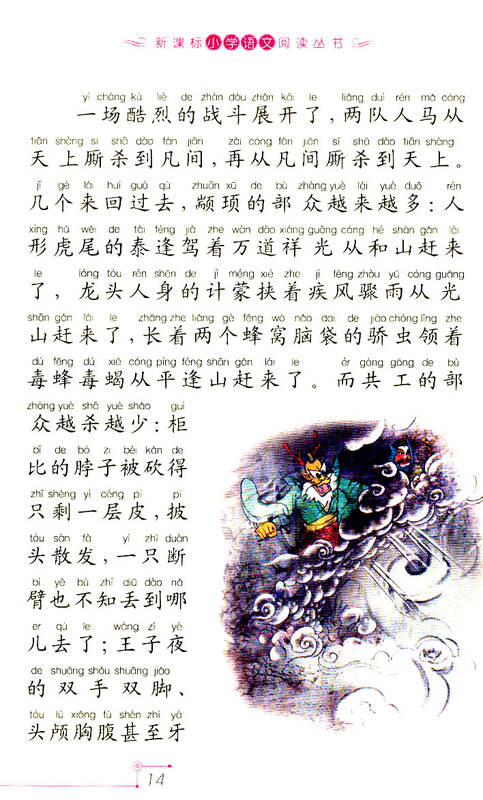 新课标小学语文阅读丛书
yì chǎng kù liè de zhàn dòu zhǎn kāi le liǎng duì rén mǎ cóng
一场酷烈的战斗展开了，两队人马从
tiān shàng sī shā dào fán jiān zài cóng fán jiān sī shā dào tiān shàng
天上厮杀到凡间，再从凡间厮杀到天上。
jǐ gè lái huí guò qù zhuān xū de bù zhòng yuè lái yuè duō rén
几个来回过去，颛顼的部众越来越多：人
xíng hǔ wěi de tài féng jià zhe wàn dào xiáng guāng cóng hé shān gǎn lái
形虎尾的泰逢驾着万道祥光从和山赶来
le lóng tóu rén shēn de jì méng xié zhe jí fēng zhòu yǔ cóng guāng
了，龙头人身的计蒙挟着疾风骤雨从光
shān gǎn lái le zhǎng zhe liǎng gè fēng wō nǎo dai de jiāo chóng lǐng zhe
山赶来了，长着两个蜂窝脑袋的骄虫领着
dú fēng dú xiē cóng píng féng shān gǎn lái le ér gòng gōng de bù
毒蜂毒蝎从平逢山赶来了。而共工的部
zhòng yuè shā yuè shǎo guì
众越杀越少：柜
bǐ de bó zi bèi kǎn de
比的脖子被砍得
zhǐ shèng yì céng pí pī
只剩一层皮，披
tóu sàn fà yì zhī duàn
头散发，一只断
bì yě bù zhī diū dào nǎ
臂也不知丢到哪
er qù le wáng zǐ yè
儿去了；王子夜
de shuāng shǒu shuāng jiǎo
的双手双脚、
tóu lú xiōng fù shèn zhì yá
头颅胸腹甚至牙
14